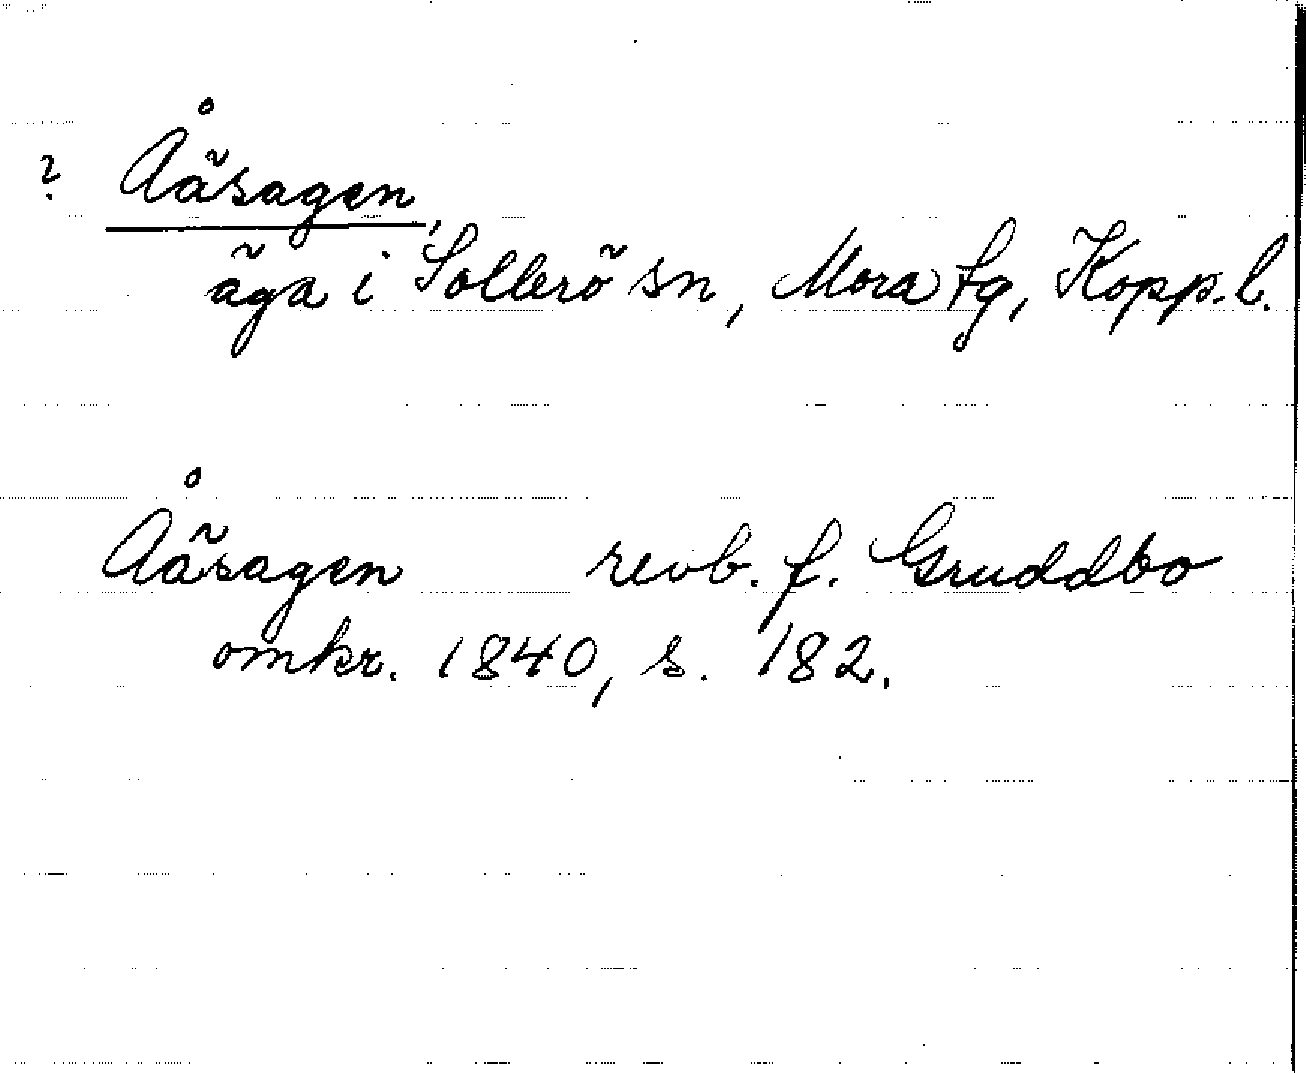 ? Åäsagen,
äga i Sollerö sn, Mora tg, Kopp. l.
Åäsagen revb. f. Gruddbo
omkr. 1840, s. 182.